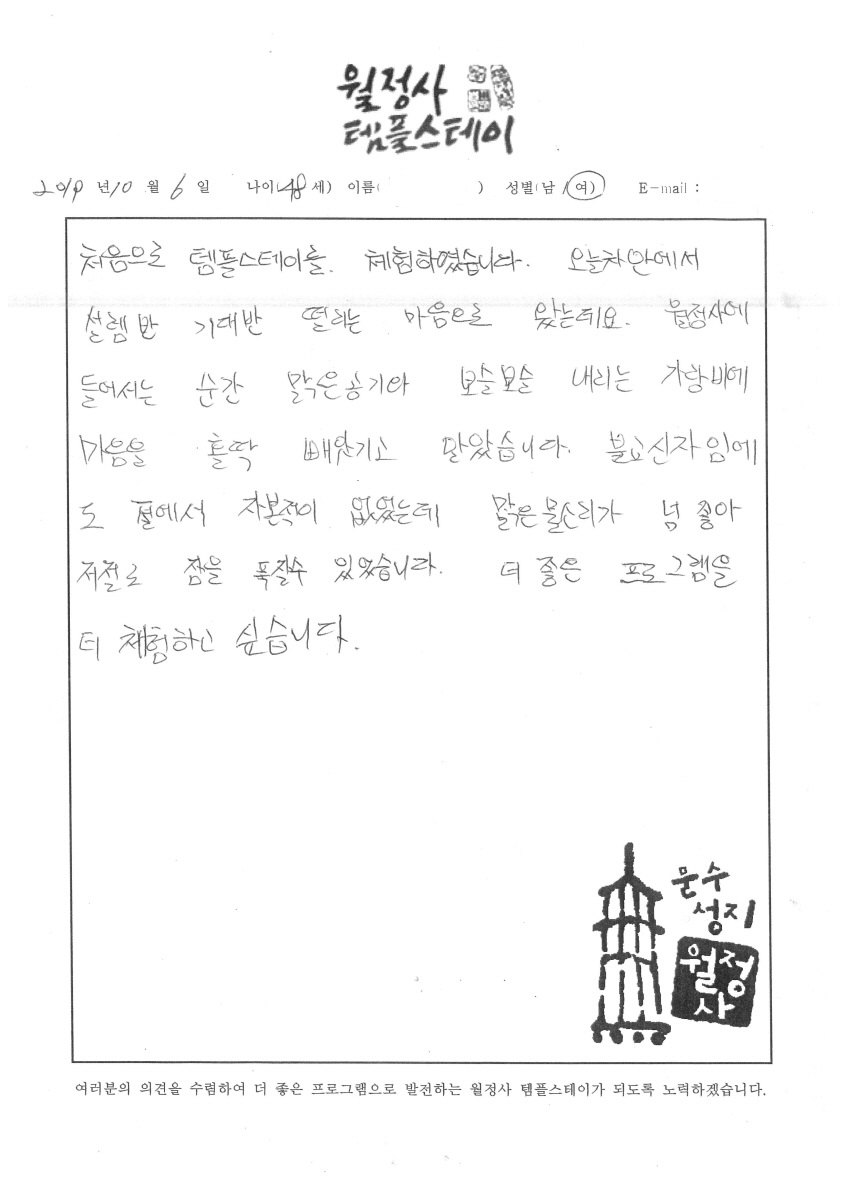 월정사
템플스테이
2019 년 10 월 6 일 나이(48세) 이름( ) 성별(남/여) E-mail :
처음으로 템플스테이를. 체험하였습니다. 오늘차안에서
설렘반 기대반 떨리는 마음으로 왔는데요. 월정사에
들어서는 순간 맑은공기와 보슬보슬 내리는 가랑비에
마음을 홀딱 빼앗기고 말았습니다. 불교신자임에
도 절에서 자본적이 없었는데 맑은물소리가 넘 좋아
저절로 잠을 푹잘수 있었습니다. 더 좋은 프로그램을
더 체험하고 싶습니다.
문수
성지
월정
사
여러분의 의견을 수렴하여 더 좋은 프로그램으로 발전하는 월정사 템플스테이가 되도록 노력하겠습니다.